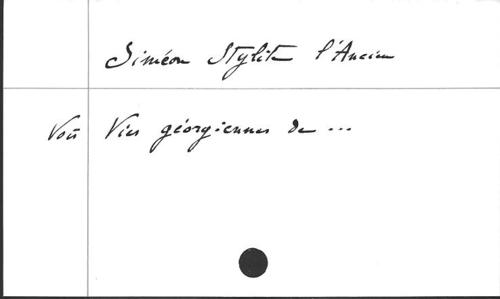 Siméon Stylite l'Ancien
Voir Vies géorgiennes de ...